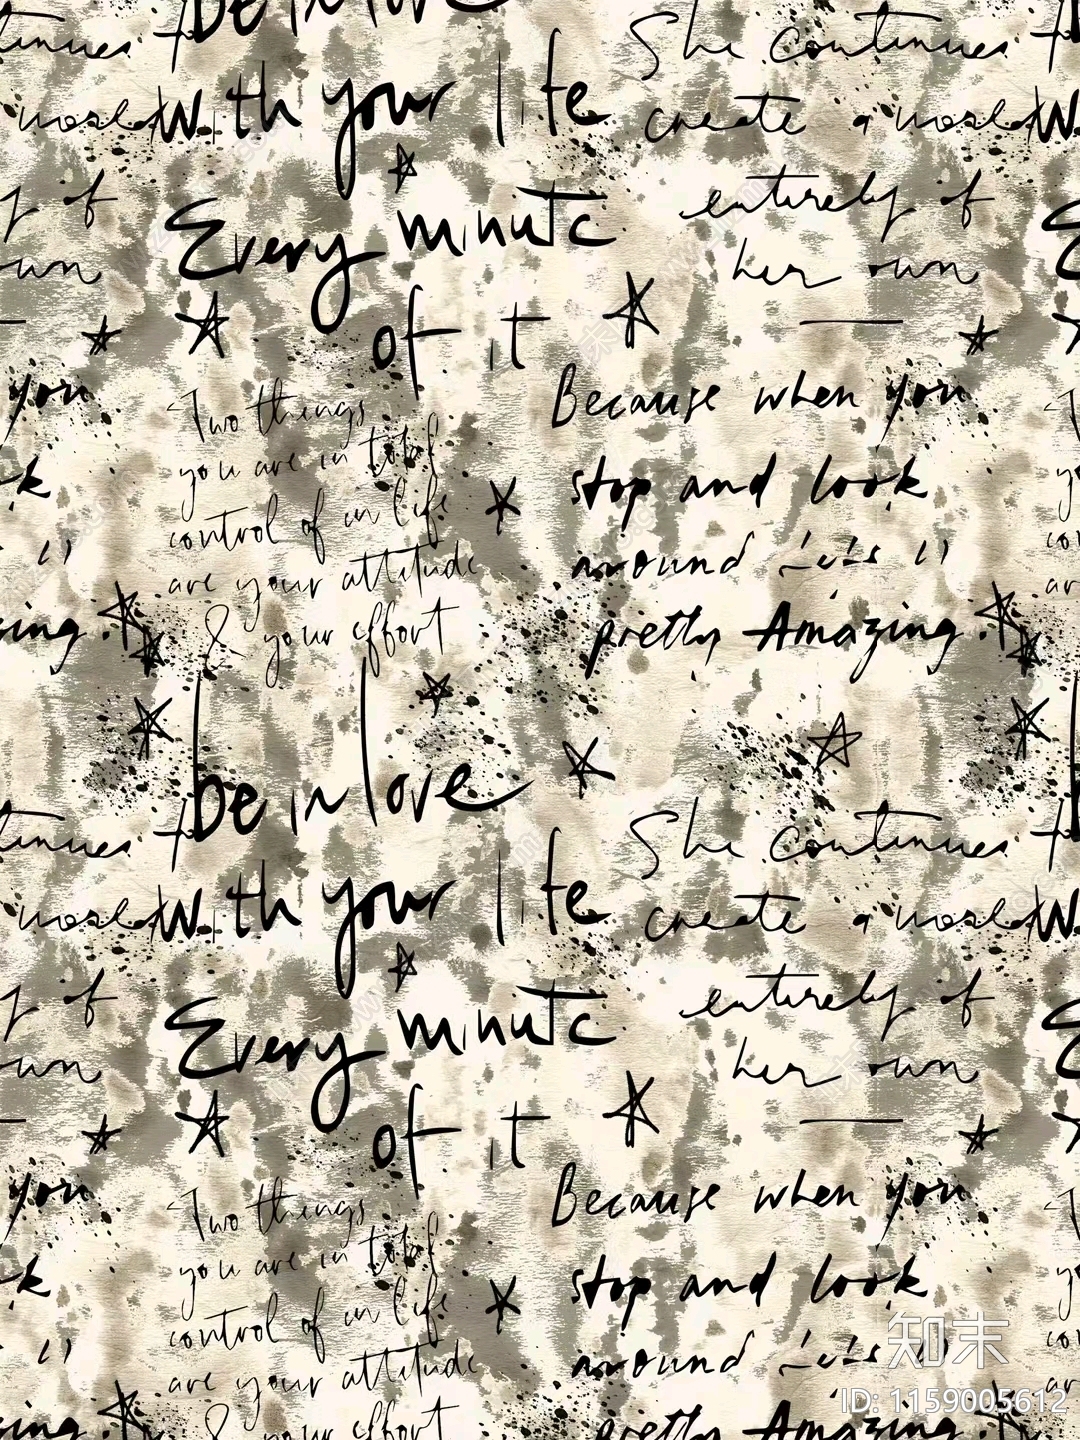 be in love
She continues to
with your life
create a world
Every minute
entirely if
her own
of it
Because when you
Two things
you are in total
stop and look
control of in life
around
are your attitude
& your effort
pretty Amazing.
be in love
She continues to
with your life
create a world
Every minute
entirely if
her own
of it
Because when you
Two things
you are in total
stop and look
control of in life
around
are your attitude
& your effort
pretty Amazing.
知末
ID: 1159005612